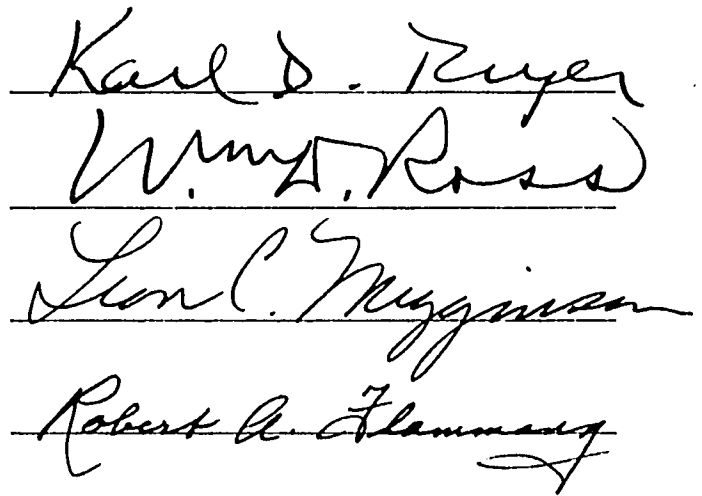 Karl D. Reyer
Wm. D. Ross
Leon C. Megginson
Robert A. Flammang